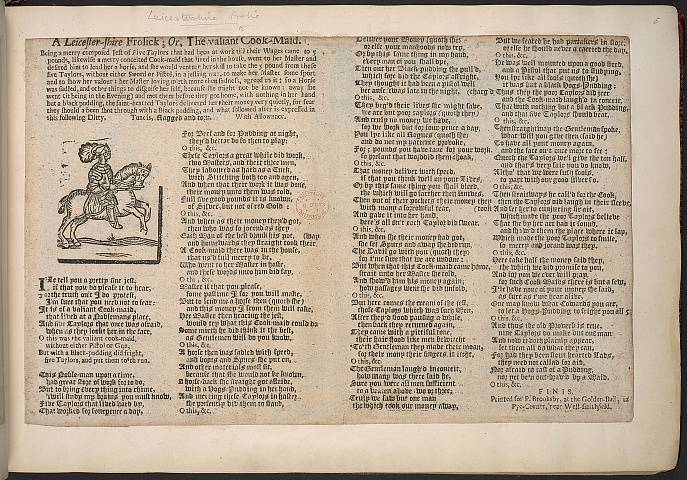 Leicestershire Frolic
A Leicester-shire Frolick; Or, The valiant Cook-Maid.
Being a merry composed Jest of Five Taylors that had been at work till their Wages came to 5
pounds, likewise a merry conceited Cook-maid that lived in the house, went to her Master and
desired him to lend her a horse, and she would venture her skill to take the 5 pound from these
five Taylors, without either Sword or Pistol, in a jesting way, to make her Master some sport
and to show her valour: her Master loving mirth more then sadness, agreed to it: so a Horse
was sadled, and other things to disguise her self, because she might not be known: away she
went (it being in the Evening) and met them before they got home, with nothing in her hand
but a black pudding, the faint-hearted Taylors delivered her their money very quietly, for fear
they should a been shot through with a black Pudding, and what followed after is expressed in
this following Ditty. Tune is, Ragged and torn. With Allowance.
I'le tell you a pretty fine jest,
if that you do please it to hear,
the truth on't I do protest,
I'm sure that you need not to fear:
It is of a valiant Cook-maid,
that lived at a Noblemans place,
And five Taylors that once was afraid,
when as they lookt her in the face,
O this was the valiant cook-maid,
without either Pistol or Gun,
But with a Black-pudding did fright,
five Taylors, and put them to th' run.
This Noble-man upon a time,
had great store of work for to do,
But to bring every thing into rhime,
i'will study my brains you must know,
Five Taylors that lived hard by,
That worked for some pence a day,
For Beef and for Pudding at night,
they'd better do so then to play:
O this, &c.
These Taylors a great while did work,
two Masters, and their three men,
They laboured as hard as a Turk,
with Stitching both too and agen,
And when that their work it was done,
their money unto them was told,
Full five good pounds it is known,
of Silver, but not of red Gold:
O this, &c.
And when as their money they'd got,
then who was so jocond as they
Each Man of the best drank his pot, (way
and homewards they straight took their
A Cook-maid there was in the house,
that us'd full merry to be,
Who went to her Master in haste,
and these words unto him did say,
O this, &c.
Master if that you please,
some pastime I for you will make,
But to lend me a horse then (quoth she)
and this money I from them will take,
Her Master then hearing the jest,
would try what this Cook-maid could do
Some mirth he did think it the best,
as Gentlemen will do you know.
O this, &c.
A horse then was sadled with speed,
and boots and Spurs she put on,
And other materials most fit,
because that she would not be known,
A horse-back she straight got astride,
with a Hogs-Pudding in her hand,
And meeting these Taylors in haste,
she presently bid them to stand,
O this, &c.
Deliver your Money (quoth she)
or else your manhoods now try,
Or by this same thing in my hand,
every man of you shall dye.
Then out her Black pudding she pull'd,
which sore did the Taylors affright,
They thought it had been a pistol well
because it was late in the night. (charg'd
O this, &c.
They beg'd their lives she might save,
we are but poor taylors (quoth they)
And really no money we have,
for we work but for four pence a day,
You lye like all Rogues (quoth she)
and do not my patience provoke,
For 5 pounds you have tane for your work,
so present that words did them choak,
O this, &c.
That money deliver with speed,
if that you think well on your lives,
Or by this same thing you shall bleed,
the which will go farther then knives.
Then out of their pockets their money they
with many a sorrowful tear, (took
And gave it into her hand,
here's all our each Taylor did swear,
O this, &c.
And when she their money had got,
she set Spurs and away she did run,
The Devil go with you (quoth they)
for I'me sure that we are undone:
But when that this Cook-maid came home,
strait unto her Master she told,
And show'd him his money again;
how passages were she did unfold,
O this, &c.
But here comes the cream of the jest,
these Taylors which was sore spent,
After they'd stood pausing a while,
then back they returned again,
They came with a pittiful tone,
their hair stood like men bewitcht
To th' Gentleman they made their moan,
for their mony their fingers it itcht,
O this, &c.
The Gentleman laught in conceit,
how many was there said he?
Sure you were all men sufficient
to a beaten above two or three;
Truth we saw but one man
the which took our money away,
But we feared he had partakers in store,
or else he should never a carried the day,
O this, &c.
He was well mounted upon a good steed,
and a Pistol that put us to Dudgeon,
You lye like all fools (quoth he)
it was but a black Hogs-Pudding:
Thus they the poor Taylors did jeer
and the Cook-maid laugh'd in conceit,
That with nothing but a black Pudding,
and that five Taylors should beat,
O this, &c.
Then straightway the Gentleman spoke,
what will you give then (said he)
To have your money again,
and the same for once may to see:
Quoth the Taylors we'l give the ten half,
and that's very fair you do know,
Altho' that we were such fools,
to part with our good silver so.
O this, &c.
Then straitways he call'd for the Cook,
then the Taylors did laugh in their sleeve,
And set her to conjuring strait
which made the poor Taylors believe
That she by her art had it found,
and shew'd them the place where it lay,
Which made the poor Taylors to smile,
so merry and jocund was they.
O this, &c.
Here take half the money said they,
the which we did promise to you,
And joy we ever will pray.
for such Cook-Maids there is but a few,
I've have none of your money she said,
as sure as I'me here alive.
One may know what Cowards you are,
to let a Hogs-Pudding to fright you all 5
O this, &c.
And thus the old Proverb is true.
nine Taylors to make but one man
And now it doth plainly appear,
let them all do what they can.
For had they been stout hearted Lads,
they need not called for aid.
Nor afraid to rast of a Pudding,
nor yet been out-dar'd by a Maid.
O this, &c.
FINIS.
Printed for P. Brooksby, at the Golden-Ball, in
Pye-Corner, near West-smithfield.